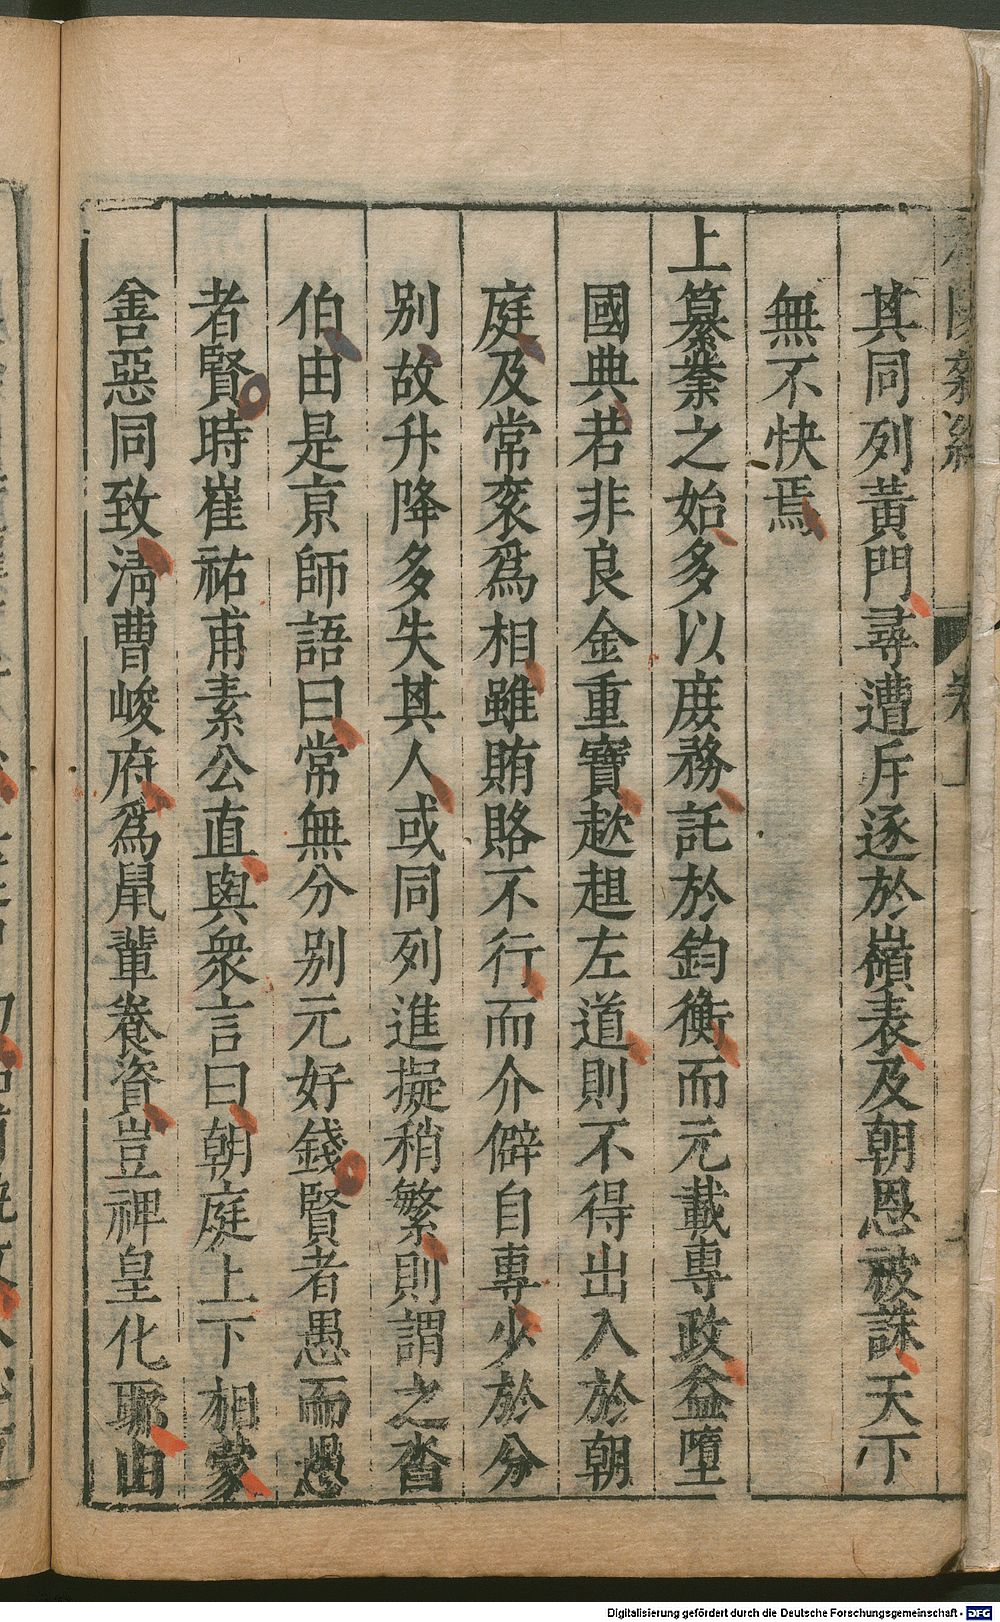 其同列黃門尋遭斥逐於嶺表及朝恩被誅天下
無不快焉
上纂業之始多以庶務託於鈞衡而元載專政益墮
國典若非良金重寶趑趄左道則不得出入於朝
庭及常袞爲相雖賄賂不行而介僻自專少於分
别故升降多失其人或同列進擬稍繁則謂之沓
伯由是京師語曰常無分别元好錢賢者愚而愚
者賢時崔祐甫素公直與衆言曰朝庭上下相蒙
善惡同致清曹峻府爲鼠輩養資豈裨皇化耶由
Digitalisierung gefördert durch die Deutsche Forschungsgemeinschaft - DFG